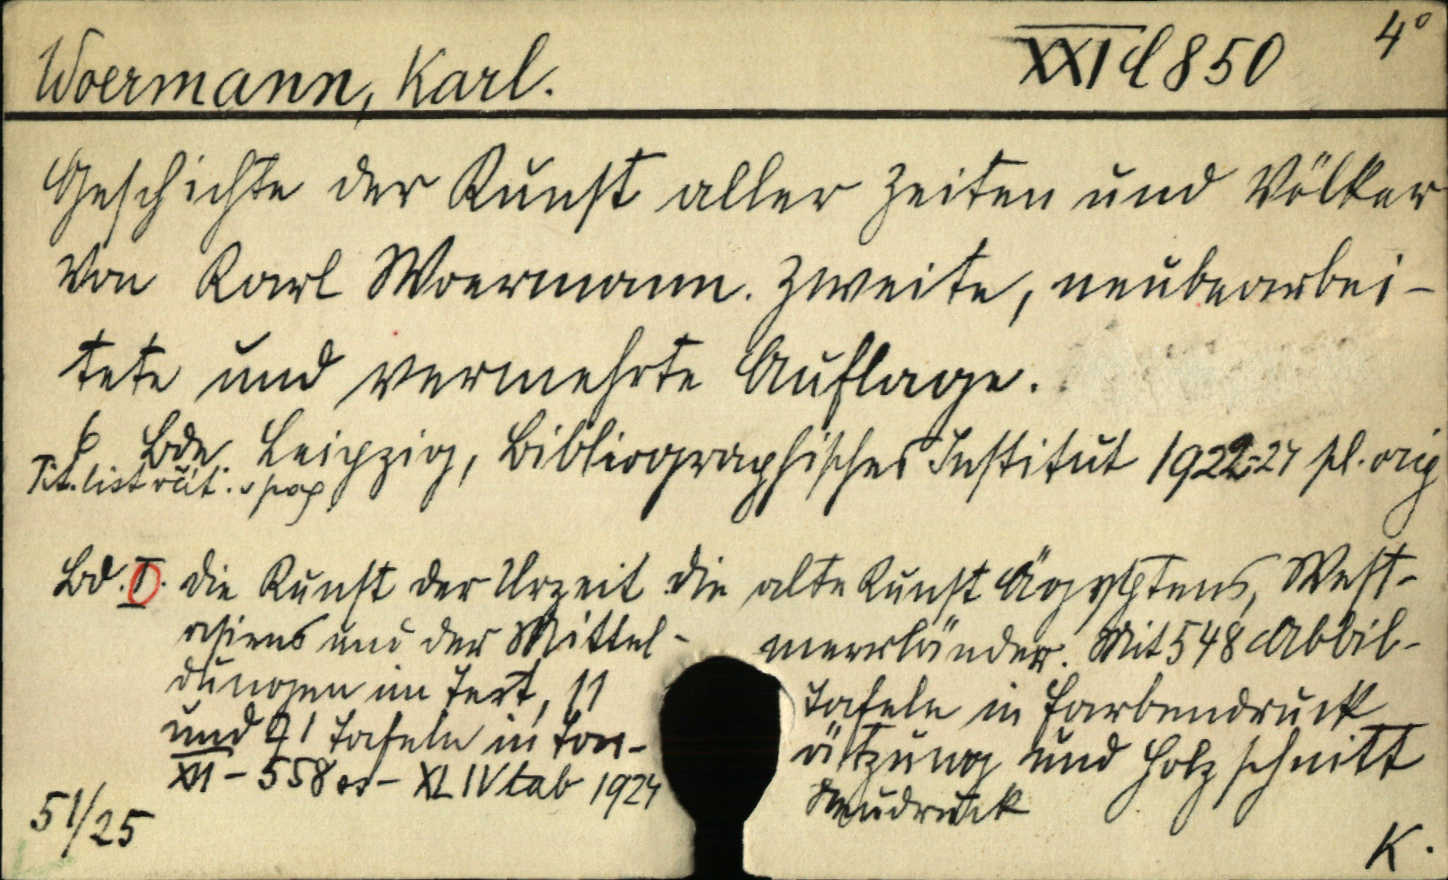 Woermann, Karl. XXI d 850 4°
Geschichte der Kunst aller Zeiten und Völker
von Karl Woermann. Zweite, neubearbei-
tete und vermehrte Auflage.
6 Bde Leipzig, Bibliographisches Institut 1922-27
Bd. I. Die Kunst der Urzeit Die alte Kunst Ägyptens, West-
asiens und der Mittel- meerländer. Mit 548 Abbil-
dungen im Text, 11 Tafeln in Farbendruck
und 71 Tafeln in Ton- ätzung und Holzschnitt
558 XLIV tab 1924 Neudruck
51/25 K.